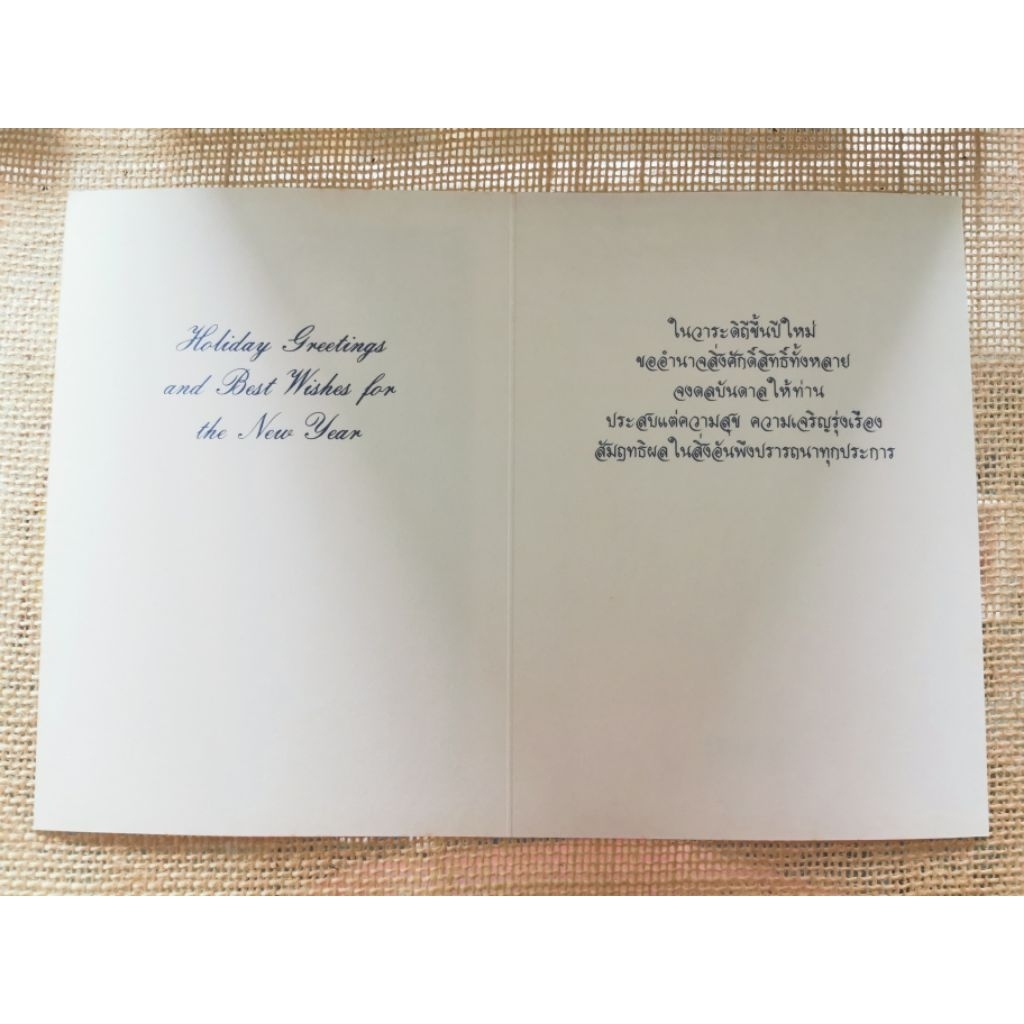 Holiday Greetings
and Best Wishes for
the New Year
ในวาระดิถีขึ้นปีใหม่
ขออำนาจสิ่งศักดิ์สิทธิ์ทั้งหลาย
จงดลบันดาลให้ท่าน
ประสบแต่ความสุข ความเจริญรุ่งเรือง
สัมฤทธิผลในสิ่งอันพึงปรารถนาทุกประการ